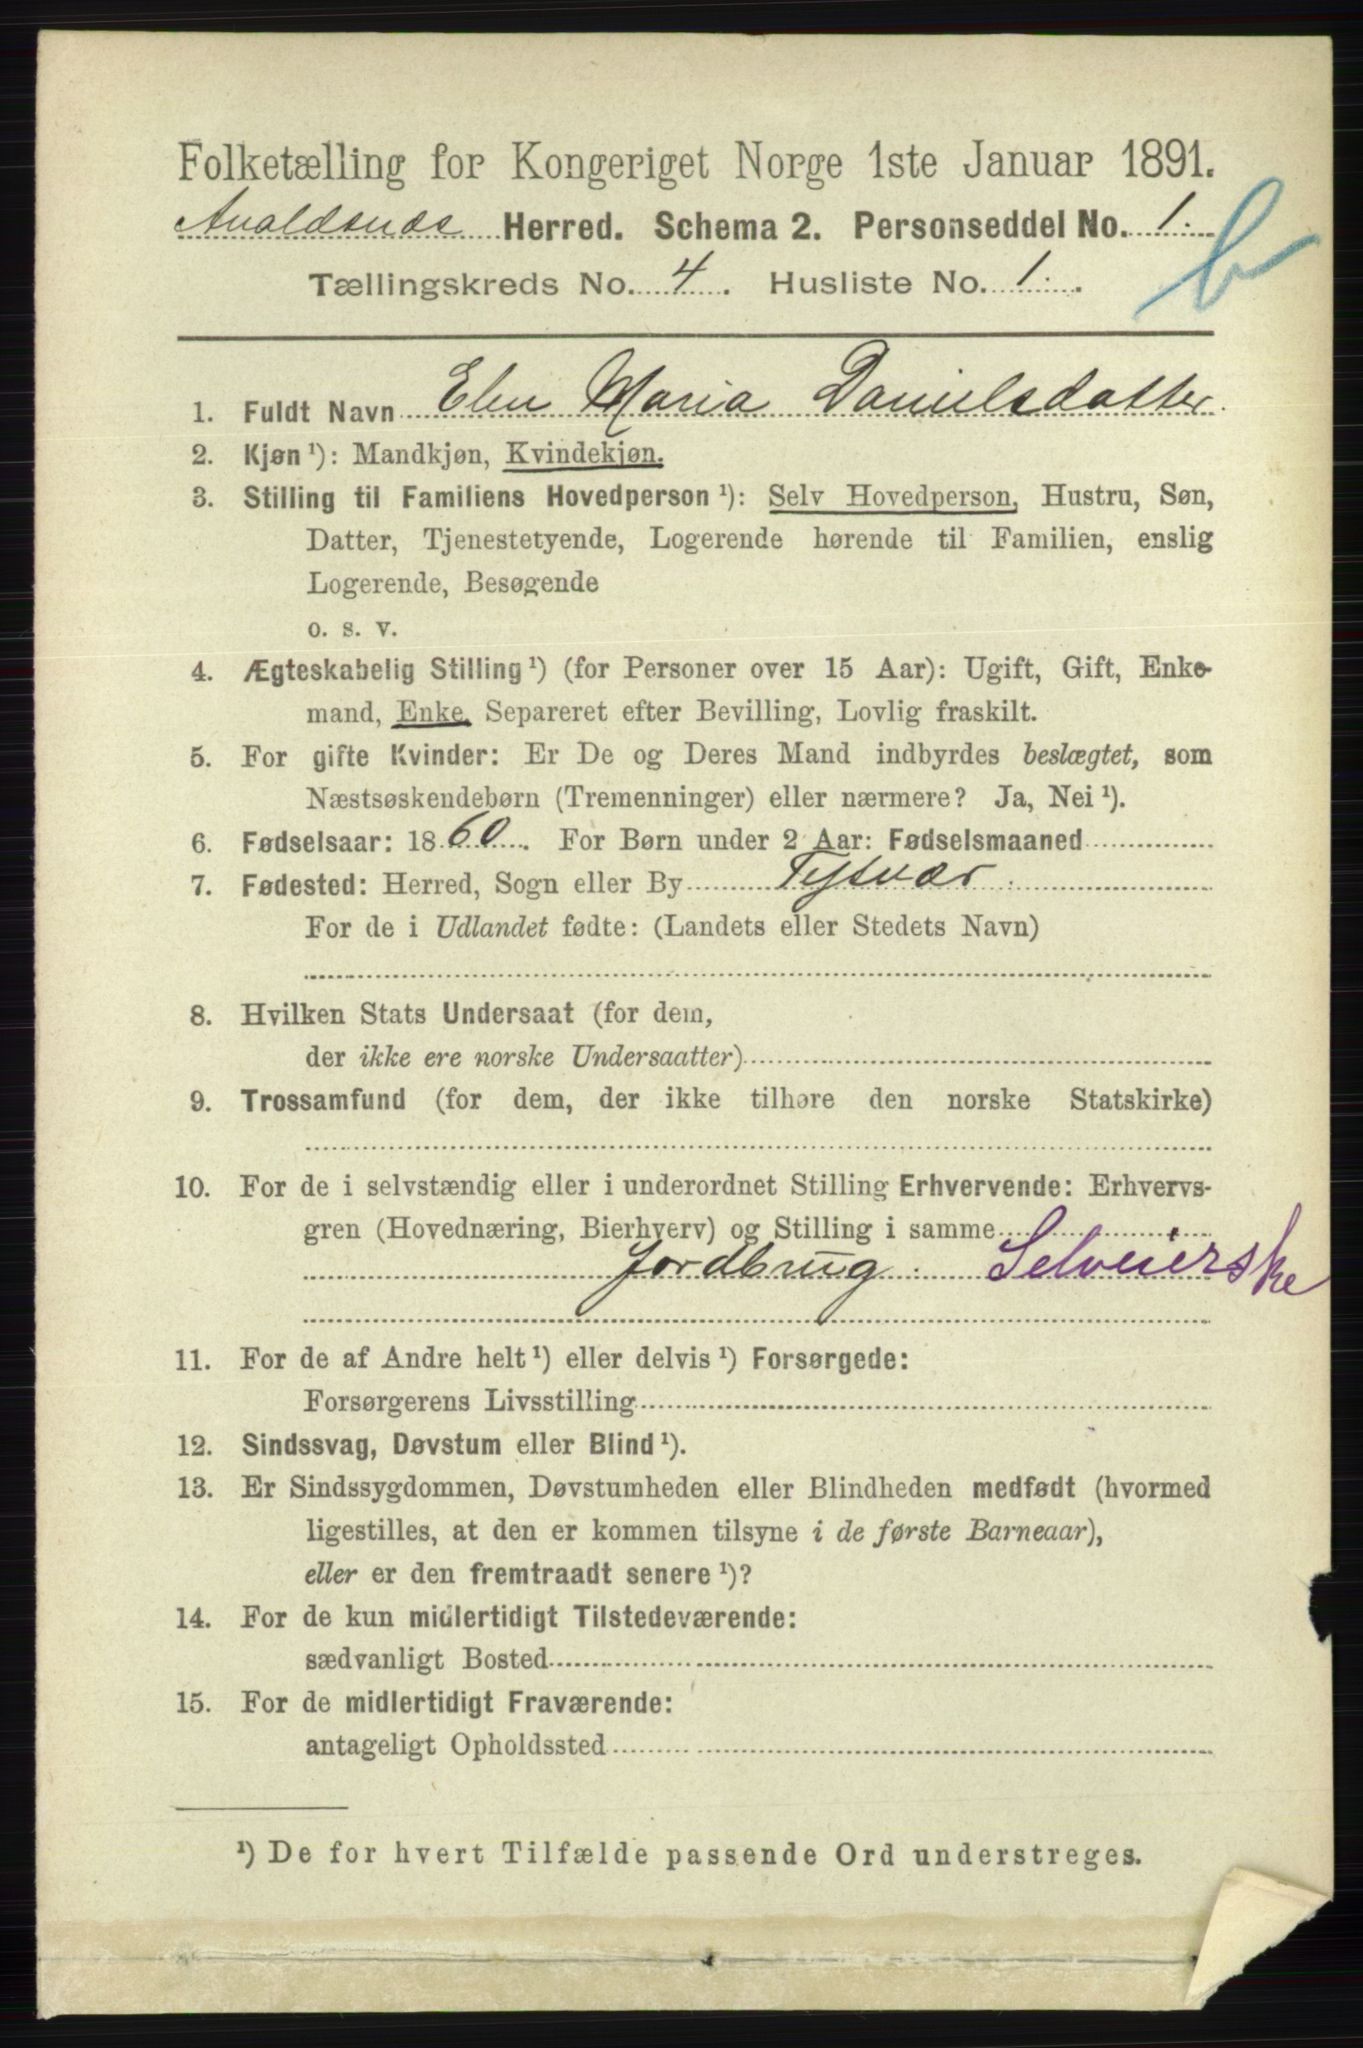 Folketælling for Kongeriget Norge 1ste Januar 1891.
Avaldsnæs Herred. Schema 2. Personseddel No. 1.
Tællingskreds No. 4. Husliste No. 1.
b
1. Fuldt Navn Elen Maria Danielsdatter
2. Kjøn ¹): Mandkjøn, Kvindekjøn.
3. Stilling til Familiens Hovedperson ¹): Selv Hovedperson, Hustru, Søn,
Datter, Tjenestetyende, Logerende hørende til Familien, enslig
Logerende, Besøgende
o. s. v.
4. Ægteskabelig Stilling ¹) (for Personer over 15 Aar): Ugift, Gift, Enke-
mand, Enke, Separeret efter Bevilling, Lovlig fraskilt.
5. For gifte Kvinder: Er De og Deres Mand indbyrdes beslægtet, som
Næstsøskendebørn (Tremenninger) eller nærmere? Ja, Nei ¹).
6. Fødselsaar: 1860. For Børn under 2 Aar: Fødselsmaaned
7. Fødested: Herred, Sogn eller By Tysvær.
For de i Udlandet fødte: (Landets eller Stedets Navn)
8. Hvilken Stats Undersaat (for dem,
der ikke ere norske Undersaatter)
9. Trossamfund (for dem, der ikke tilhøre den norske Statskirke)
10. For de i selvstændig eller i underordnet Stilling Erhvervende: Erhvervs-
gren (Hovednæring, Bierhverv) og Stilling i samme
Jordbrug. Selveierske
11. For de af Andre helt ¹) eller delvis ¹) Forsørgede:
Forsørgerens Livsstilling
12. Sindssvag, Døvstum eller Blind ¹).
13. Er Sindssygdommen, Døvstumheden eller Blindheden medfødt (hvormed
ligestilles, at den er kommen tilsyne i de første Barneaar),
eller er den fremtraadt senere ¹)?
14. For de kun midlertidigt Tilstedeværende:
sædvanligt Bosted
15. For de midlertidigt Fraværende:
antageligt Opholdssted
¹) De for hvert Tilfælde passende Ord understreges.